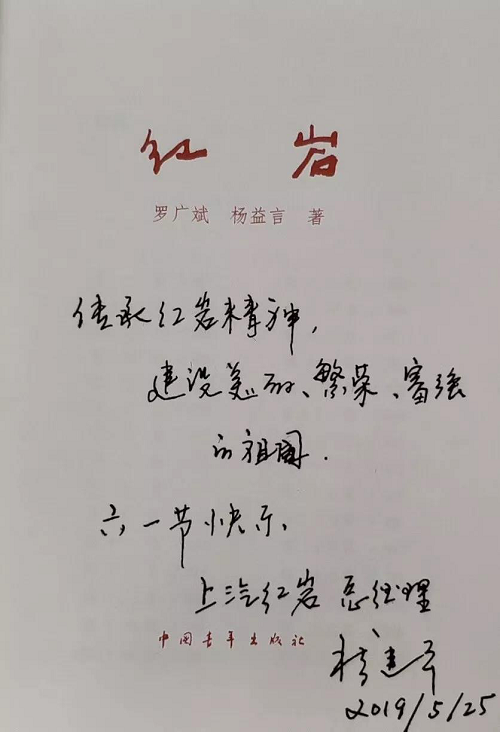 红岩
罗广斌 杨益言 著
传承红岩精神,
建设美丽、繁荣、富强
的祖国.
六一节快乐.
上汽红岩 总经理
中国青年出版社
建平
2019/5/25